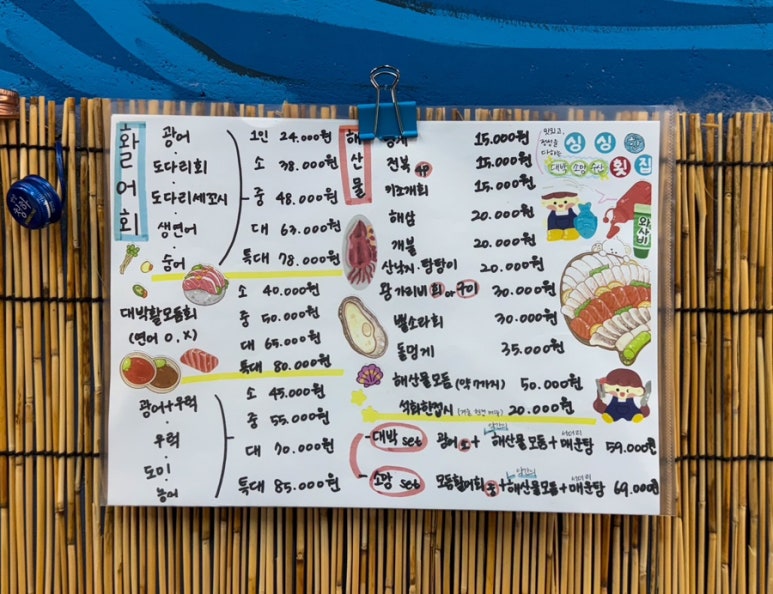 활어회
광어
도다리회
도다리세꼬시
생연어
숭어
1인 24.000원
소 38.000원
중 48.000원
대 63.000원
특대 78.000원
대박활모둠회
(연어 O, X)
소 40.000원
중 50.000원
대 65.000원
특대 80.000원
광어+우럭
우럭
도미
농어
소 45.000원
중 55.000원
대 70.000원
특대 85.000원
해산물
15.000원
전복 4P 15.000원
키조개회 15.000원
해삼 20.000원
개불 20.000원
산낙지·탕탕이 20.000원
왕가리비 회 or 구이 30.000원
뿔소라회 30.000원
돌멍게 35.000원
해산물모둠 (약 7가지) 50.000원
석화한접시 20.000원
대박 set 광어 소 + 해산물 모둠 + 매운탕 59.000원
소망 set 모둠활어회 중 + 해산물모둠 + 매운탕 69.000원
맛있고,
정성을
다하는
싱싱
대박 소망
횟집
와사비